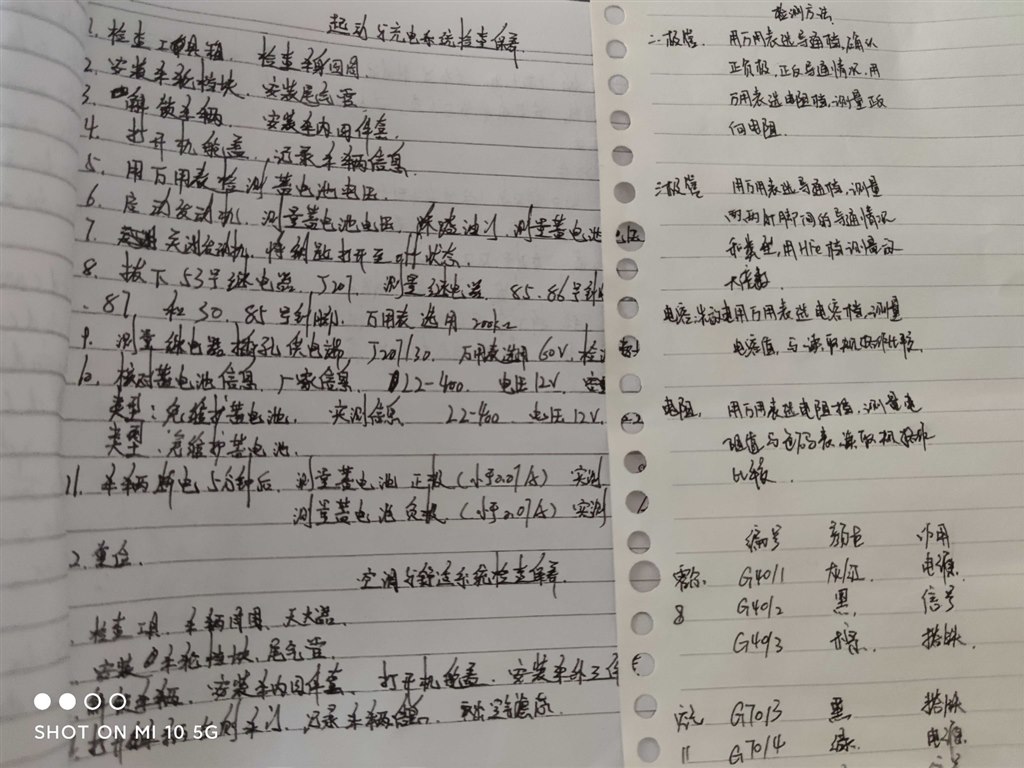 起动与充电系统检查保养
1. 检查工具箱. 检查车辆周围.
2. 安装车轮挡块. 安装尾气管
3. 解锁车辆. 安装车内四件套.
4. 打开机舱盖. 记录车辆信息.
5. 用万用表检测蓄电池电压.
6. 启动发动机. 测量蓄电池电压. 测量蓄电池
7. 关闭发动机. 将钥匙打开至off状态.
8. 拔下53号继电器. J207. 测量继电器. 85.86号
87 和30.85号针脚. 万用表选用 200kΩ
9. 测量继电器插孔供电端, J207/30. 万用表选用 60V.
10. 核对蓄电池信息. 厂家信息. L22-400. 电压12V.
类型:免维护蓄电池. 实测信息 L22-400 电压12V.
类型:免维护蓄电池.
11. 车辆断电5分钟后. 测量蓄电池正极(小于0.07A) 实测
测量蓄电池负极. (小于0.07A) 实测
2. 复位.
空调与舒适系统检查保养.
检查工具. 车辆周围. 灭火器.
安装车轮挡块. 尾气管.
车辆. 安装车内四件套. 打开机舱盖. 安装车外三件
记录车辆信息.
检测方法
二极管. 用万用表选导通档. 确认
正负极. 正反导通情况. 用
万用表选电阻档. 测量正反
向电阻.
三极管 用万用表选导通档. 测量
两两针脚间的导通情况
和类型, 用Hfe档识情放
大倍数.
电容: 用万用表选电容档. 测量
电容值. 与 比较
电阻. 用万用表选电阻档. 测量电
阻值与色码表.
比较.
编号 颜色 作用
G40/1 灰/红. 电源.
8 G40/2 黑. 信号
G40/3 棕. 搭铁.
G70/3 黑 搭铁
11 G70/4 绿. 电源.
SHOT ON MI 10 5G